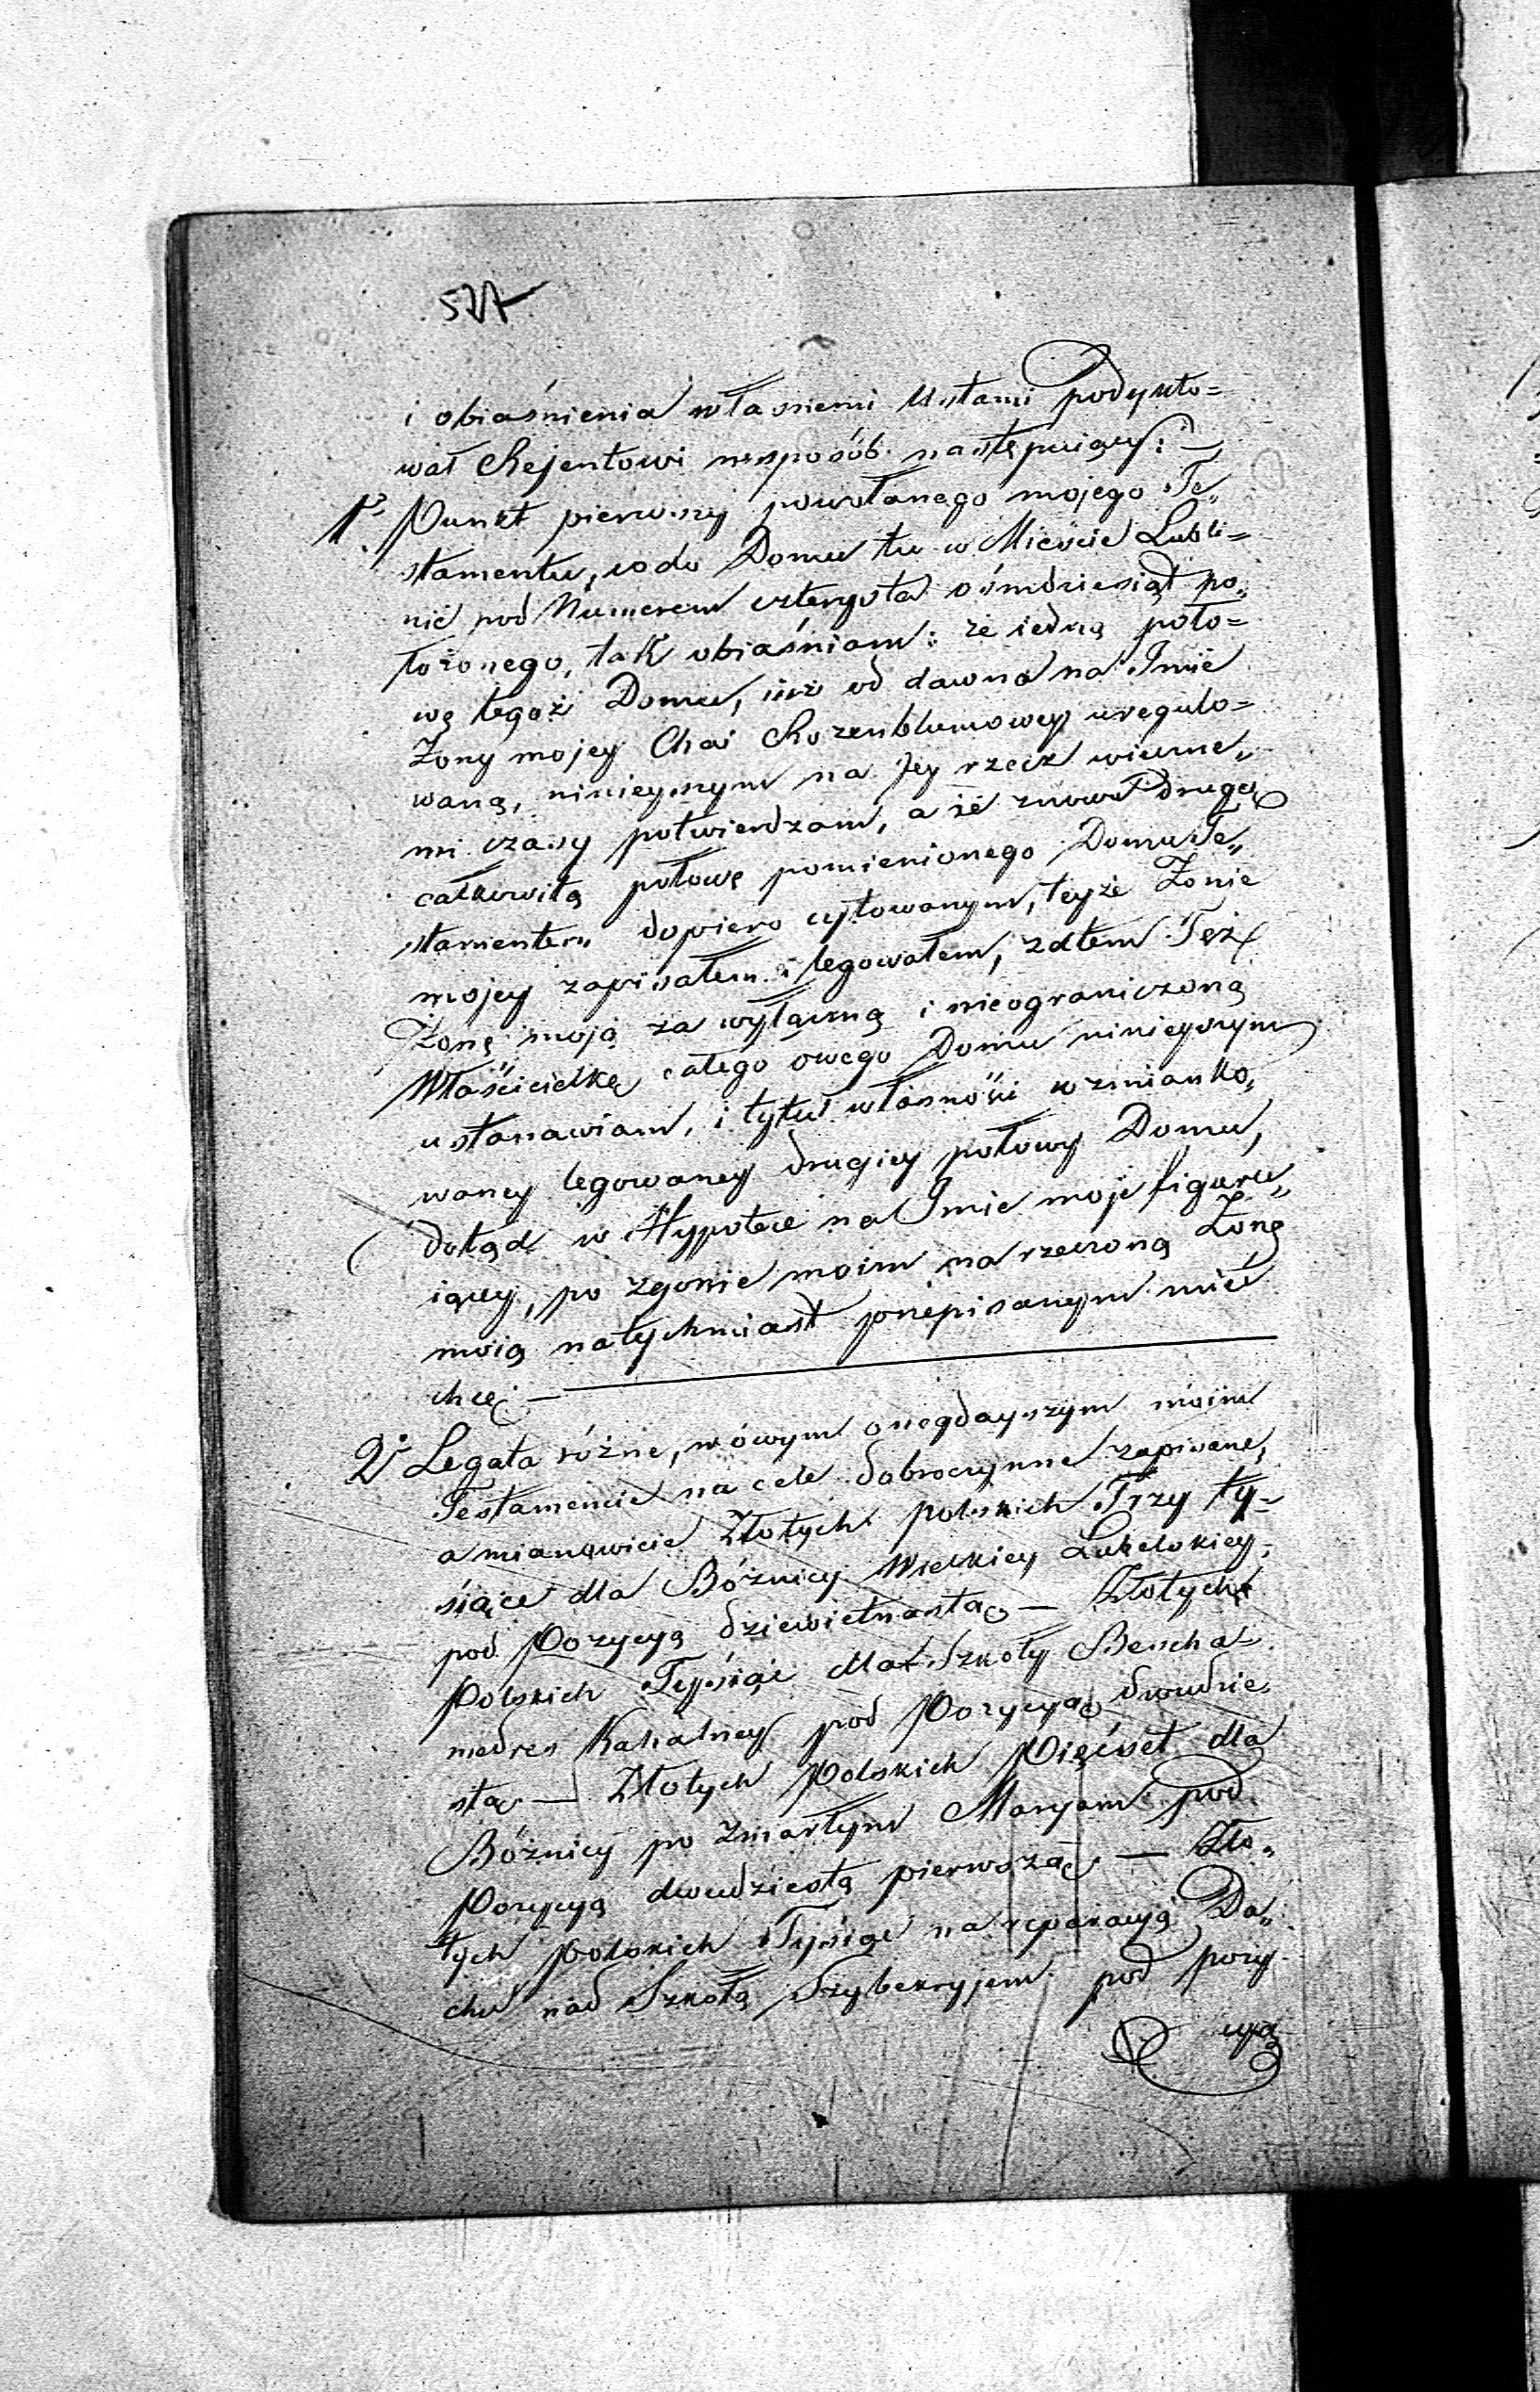 527
i obiaśnienia własnemi Ustami podykto=
wał Rejentowi wsposób następuiący: —
1º Punkt pierwszy powołanego mojego Te„
stamentu, co do Domu tu w Mieście Lubli=
nie pod Numerem czterysta ośmdziesiąt po„
łożonego, tak obiaśniam: że iedną poło=
wę tegoż Domu, iuż od dawna na Imie
Żony mojey Chai Rozenblumowey uregulo=
waną, ninieyszym na Jey rzecz wieczne„
mi czasy potwierdzam, a że znowu drugą
całkowitą połowę pomienionego Domu Te„
stamentem dopiero cytowanym, teyże Żonie
mojey zapisałem i legowałem, zatem Też
Żonę moją za wyłączną i nieograniczoną
Właścicielkę całego owego Domu ninieyszym
ustanawiam, i tytuł własności wzmianko„
waney legowaney drugiey połowy Domu,
dotąd w Hypotece na Imie moje figuru„
iącey, po zgonie moim na rzeczoną Żonę
moią natychmiast przepisanym mieć
chcę. —
2º Legata różne, w ówym onegdayszym moim
Testamencie na cele dobroczynne zapisane,
a mianowicie Złotych polskich Trzy ty=
siące dla Bóżnicy Wielkiey Lubelskiey,
pod Pozycyą dziewiętnastą — Złotych
Polskich Tysiąc dla Szkoły Bescha=
medres Kahalney pod Pozycyą dwudzie
stą — Złotych Polskich Pięćset dla
Bóżnicy po zmarłym Maryam pod
Pozycyą dwudziestą pierwszą, — Zło„
tych polskich Tysiąc na reparacyą Da„
chu nad Szkołą pod pozy
cyą